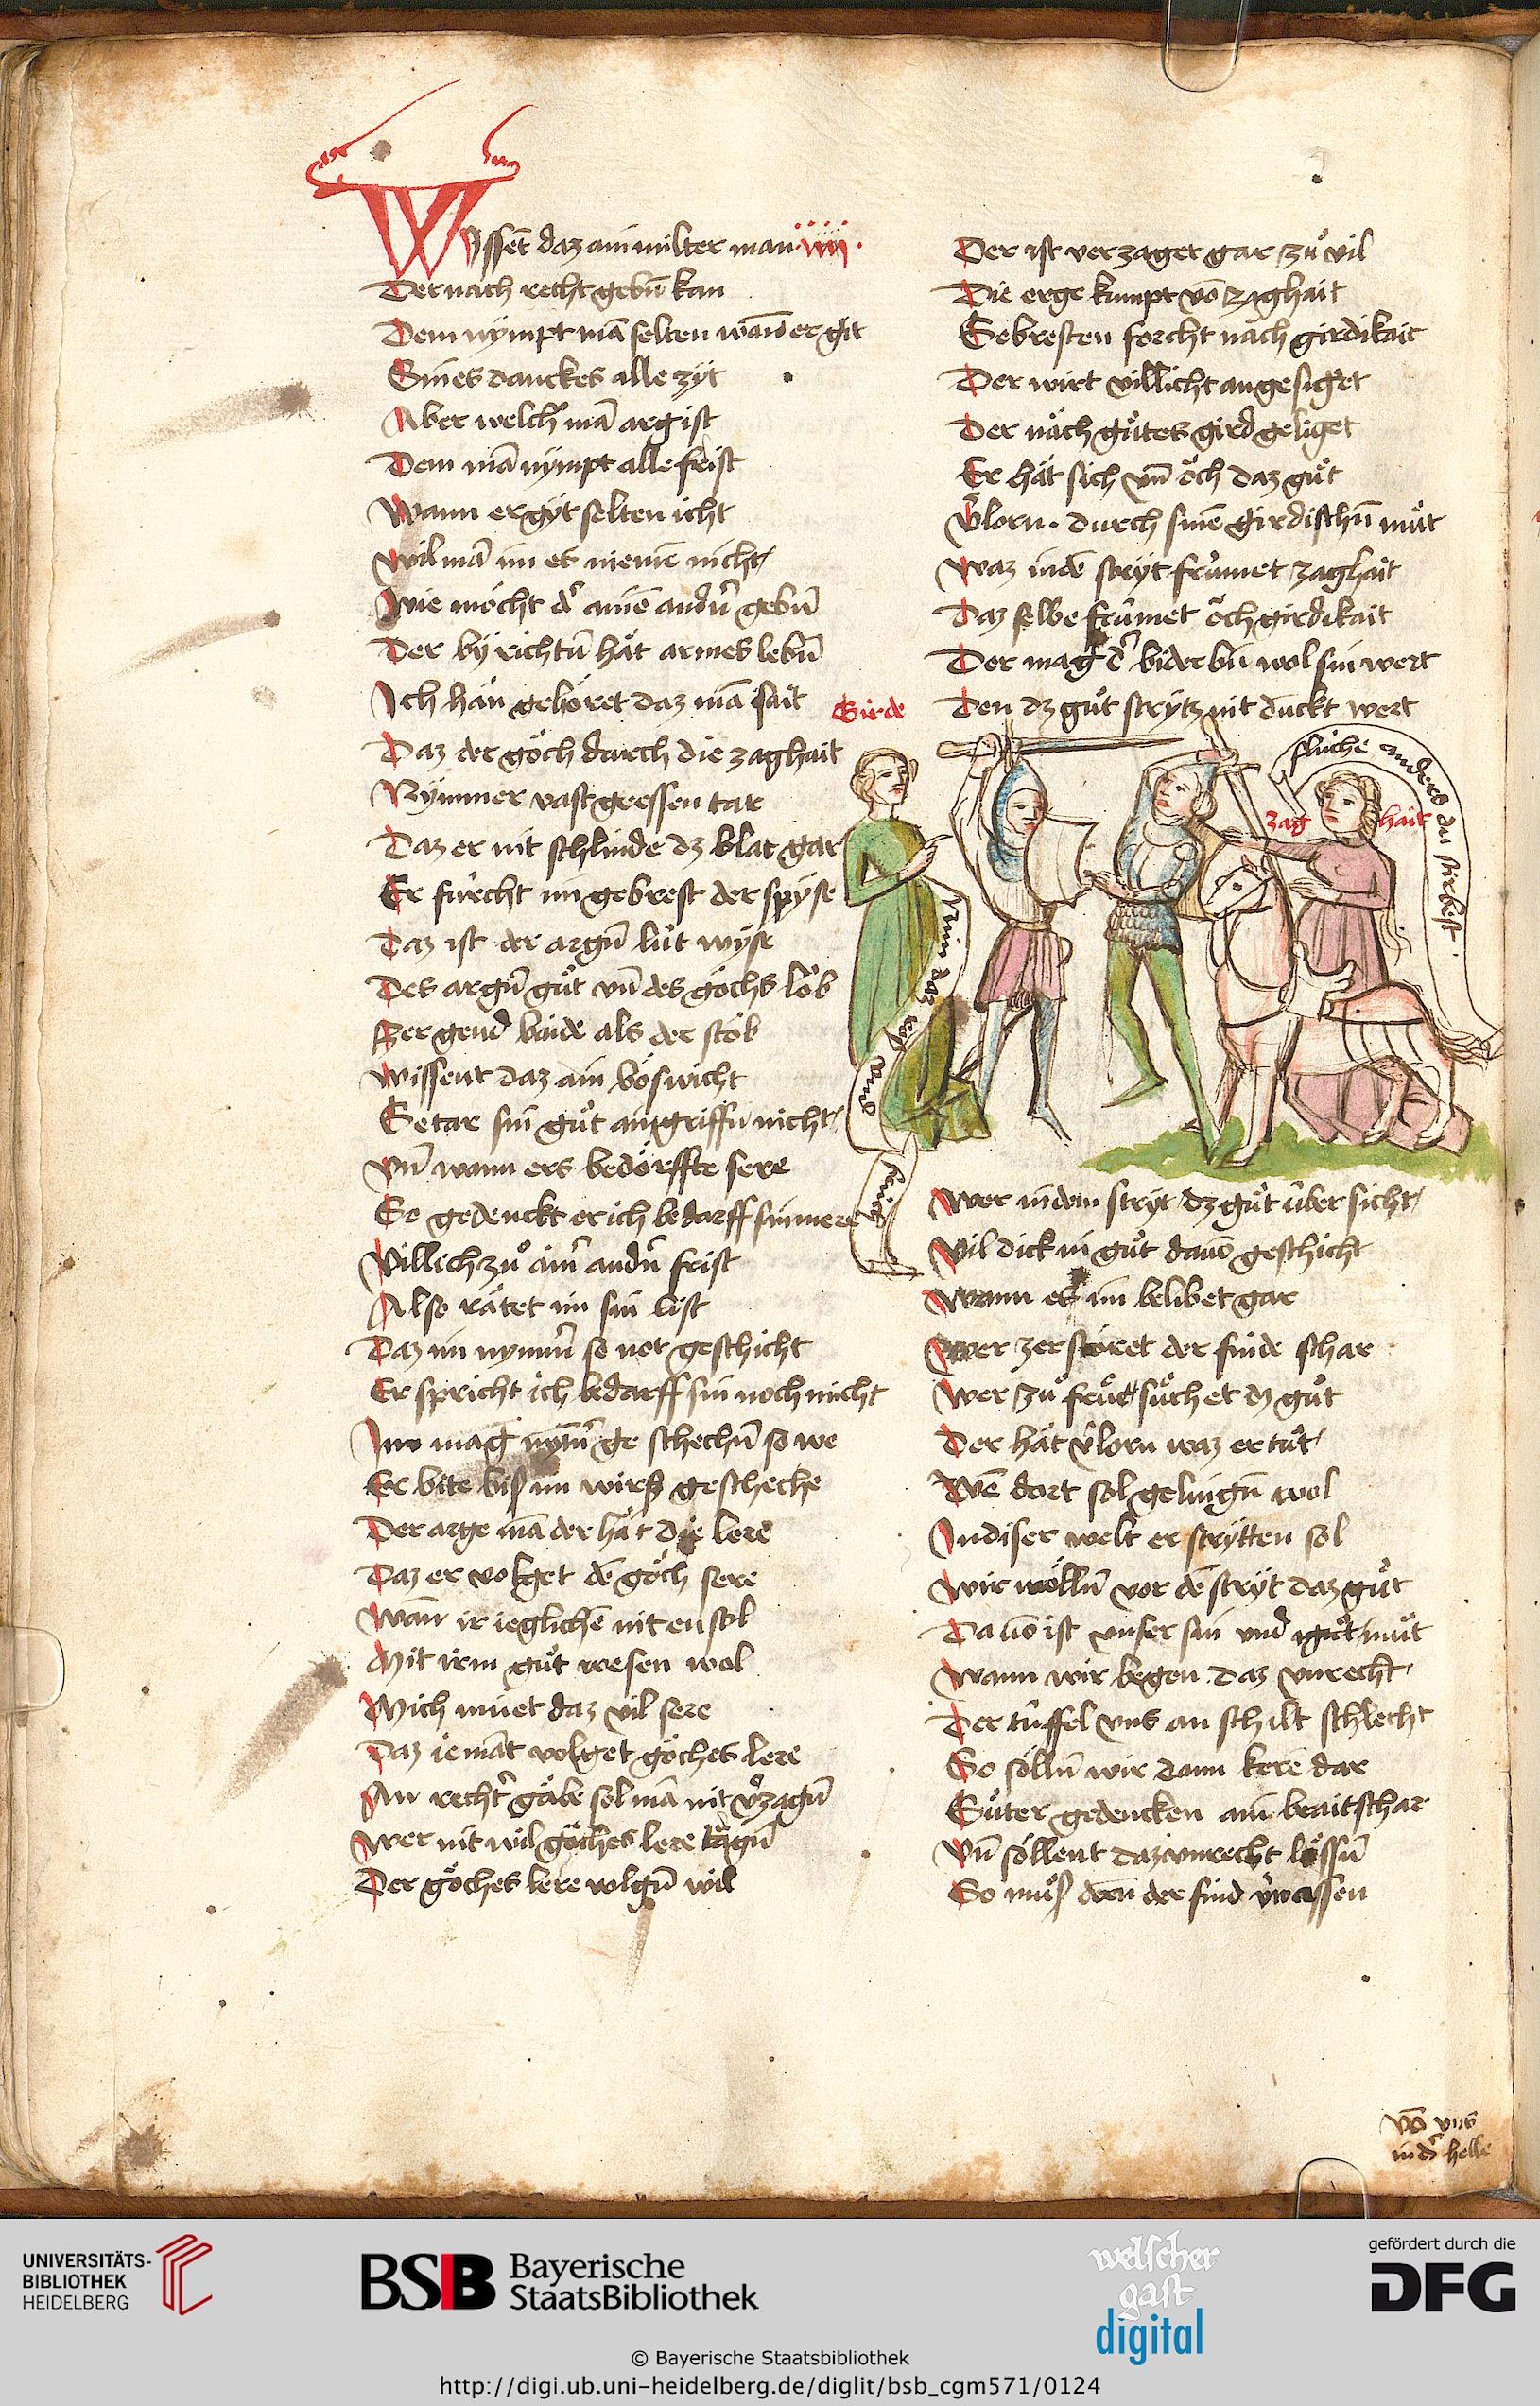 Wissēt daz ain milter man · iiii ·
Der nach recht gebn̄ kan
Dem nÿmpt mā selten wān er git
Sines danckes alle zÿt
Aber welch mā arg ist
Dem mā nÿmpt alle frist
Wann er gÿt selten icht
Wil mā im es niemē nicht
Wie möcht der ainē andn̄ gebn̄
Der bÿ richtū hät armes lebn̄
Ich hän gehöret daz mā sait
Daz der göch durch die zaghait
Nÿmmer vast gressen tar
Daz er nit schlinde dz blat gar
Er fürcht im gebrest der spÿse
Daz ist der argn̄ lüt wÿse
Des argn̄ gůt vn̄ des göchs lob
Zergend baide als der stob
Wissent daz ain böswicht
Getar sin gůt angriffn nicht
Vn̄ wann ers bedörffte sere
So gedenckt er ich bedarff sin mere
Villich zů aim̄ andn̄ frist
Also rätet im sin list
Daz im nymm̄ so not geschicht
Er spricht ich bedarff sin noch nicht
Im mag nÿm̄ ge schechn̄ so we
Er bite biß im wirß gescheche
Der arge mā der hät die lere
Daz er volget dē göch sere
Wān ir ieglichē nit en sol
Mit irm gůt wesen wol
Mich müet daz vil sere
Daz iemāt volget göches lere
An recht̄ gäbe sol mā nit v̄zagn̄
Wer nit wil göches lere tragn̄
Der göches lere volgn̄ wil
Der ist verzaget gar zů vil
Die erge kumpt vō zaghait
Gebresten forcht näch girdikait
Der wirt villicht angesiget
Der näch gůtes gird geliget
Er hät sich vn̄ öch daz gůt
V̄lorn · durch sinē girdischn̄ můt
Waz in dē strÿt frümet zaghait
Daz selbe frümet öch girdikait
Der mag d̄ biderbn̄ wol sin wert
Den dz gůt strÿtz nit duckt wert
Girde
Nim daz ros vnd
fluche anders du stirbest
zag hait
Wer in dem strÿt dz gůt über sicht
Vil dick in gůt dauō geschicht
Wann es im belibet gar
Wer zerstöret der finde schar
Wer zů frů süchet dz gůt
Der hät v̄lorn waz er tůt
Wē dort sol gelingn̄ wol
In diser welt er strÿtten sol
Wir wölln̄ vor dē strÿt daz gůt
Da uō ist vnser sin vnd můt
Wann wir begen daz vnrecht
Der tüffel vns an schilt schlecht
So sölln̄ wir dann kere dar
Gůter gedencken ain brait schar
Vn̄ söllent daz vnrecht lässn̄
So můß der find v̄wassen
vō vns
in d̄ helle
UNIVERSITÄTS-
BIBLIOTHEK
HEIDELBERG
BSB Bayerische
StaatsBibliothek
welscher
gast
digital
gefördert durch die
DFG
© Bayerische Staatsbibliothek
http://digi.ub.uni-heidelberg.de/diglit/bsb_cgm571/0124